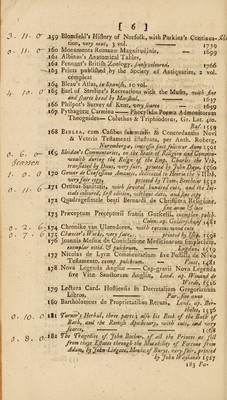 [ 6 ]
3. 11. 0 159 Blomfeld's History of Norfolk, with Parkin's Continua-
tion, very neat, 5 vol. 1739
0. 11. 0 160 Monumenta Romanæ Magnitudinis, 1699
161 Albinus's Anatomical Tables,
162 Pennant's British Zoology, finely coloured, 1766
163 Prints published by the Society of Antiquaries, 2 vol.
compleat
164 Bleau's Atlas, in Spanish, 10 vol.
4. 10. 0 165 Earl of Strafford's Recreations with the Muses, with fine
head by Marshal, 1637
166 Philpot's Survey of Kent, very scarce
0. 4. 0 167 Pythagoræ Carmina Phocylidis Poema Admonitorium
Theognidis Coluthus & Triphiodorus, Gr. Lat. ap.
Bal. 1559
168 BIBLIA, cum Casibus summariis & Concordantiis Novi
& Veteris Testamenti illustrata, per Anth. Koberg,
Nuremberge, impressa fuit feliciter Anno 1501
0. 6. 0 169 Sleidan's Commentaries, on the State of Religion and Common-
wealth during the Reign of the Emp. Charles the Vth,
translated by Daus, very fair, printed by John Daye, 1560
1. 0. 0 170 Gower de Confessione Amantis, dedicated to Henry the VIIIth,
very fair copy, printed by Thom. Berthelet 1532
0. 11. 6 171 Ortus Sanitatis, with several hundred cuts, and the Ca-
pitals coloured, first edition, without date, and fine copy
172 Quadragesimale beati Bernardi de Christiana Religione,
sine anno & loco
173 Præceptum Preceptorii fratris Gotscelli, exemplar pulch.
Colon. ap. Guldenschaff 1481
0. 2. 6 174 Chronike van Ulaenderen, with curious wood cuts
0. 7. 0 175 Chaucer's Works, very fair, printed by Islip, 1598
176 Joannis Mesuæ de Consolatione Medicinarum simplicium,
exemplar nitid. & pulchrum, Lugduni 1519
177 Nicolas de Lyræ Commentarium sive Postilla de Novo
Testamento, comp. pulchrum, Venet. 1481
178 Nova Legenda Angliæ Capgravii Nova Legenda
sive Vitæ Sanctorum Angliæ, Lond. ap. Winand de
Worde, 1516
179 Lectura Card. Hostiensis in Decretalium Gregorianum
Librum. Par. sine anno
180 Bartholomæus de Proprietatibus Rerum, Lond. ap. Ber-
thelet, 1536
0. 10. 0 181 Turner's Herbal, three parts; also his Book of the Bath of
Bath, and the Rample Apothecary, with cuts, and very
scarce, 1568
0. 8. 0 182 The Tragedies of John Bochas, of all the Princes as fell
from theyr Estates through the Mutability of Fortune from
Adam, by John Lidgate, Monke of Burye, very fair, printed
by John Wayland 1527
183 Fa-